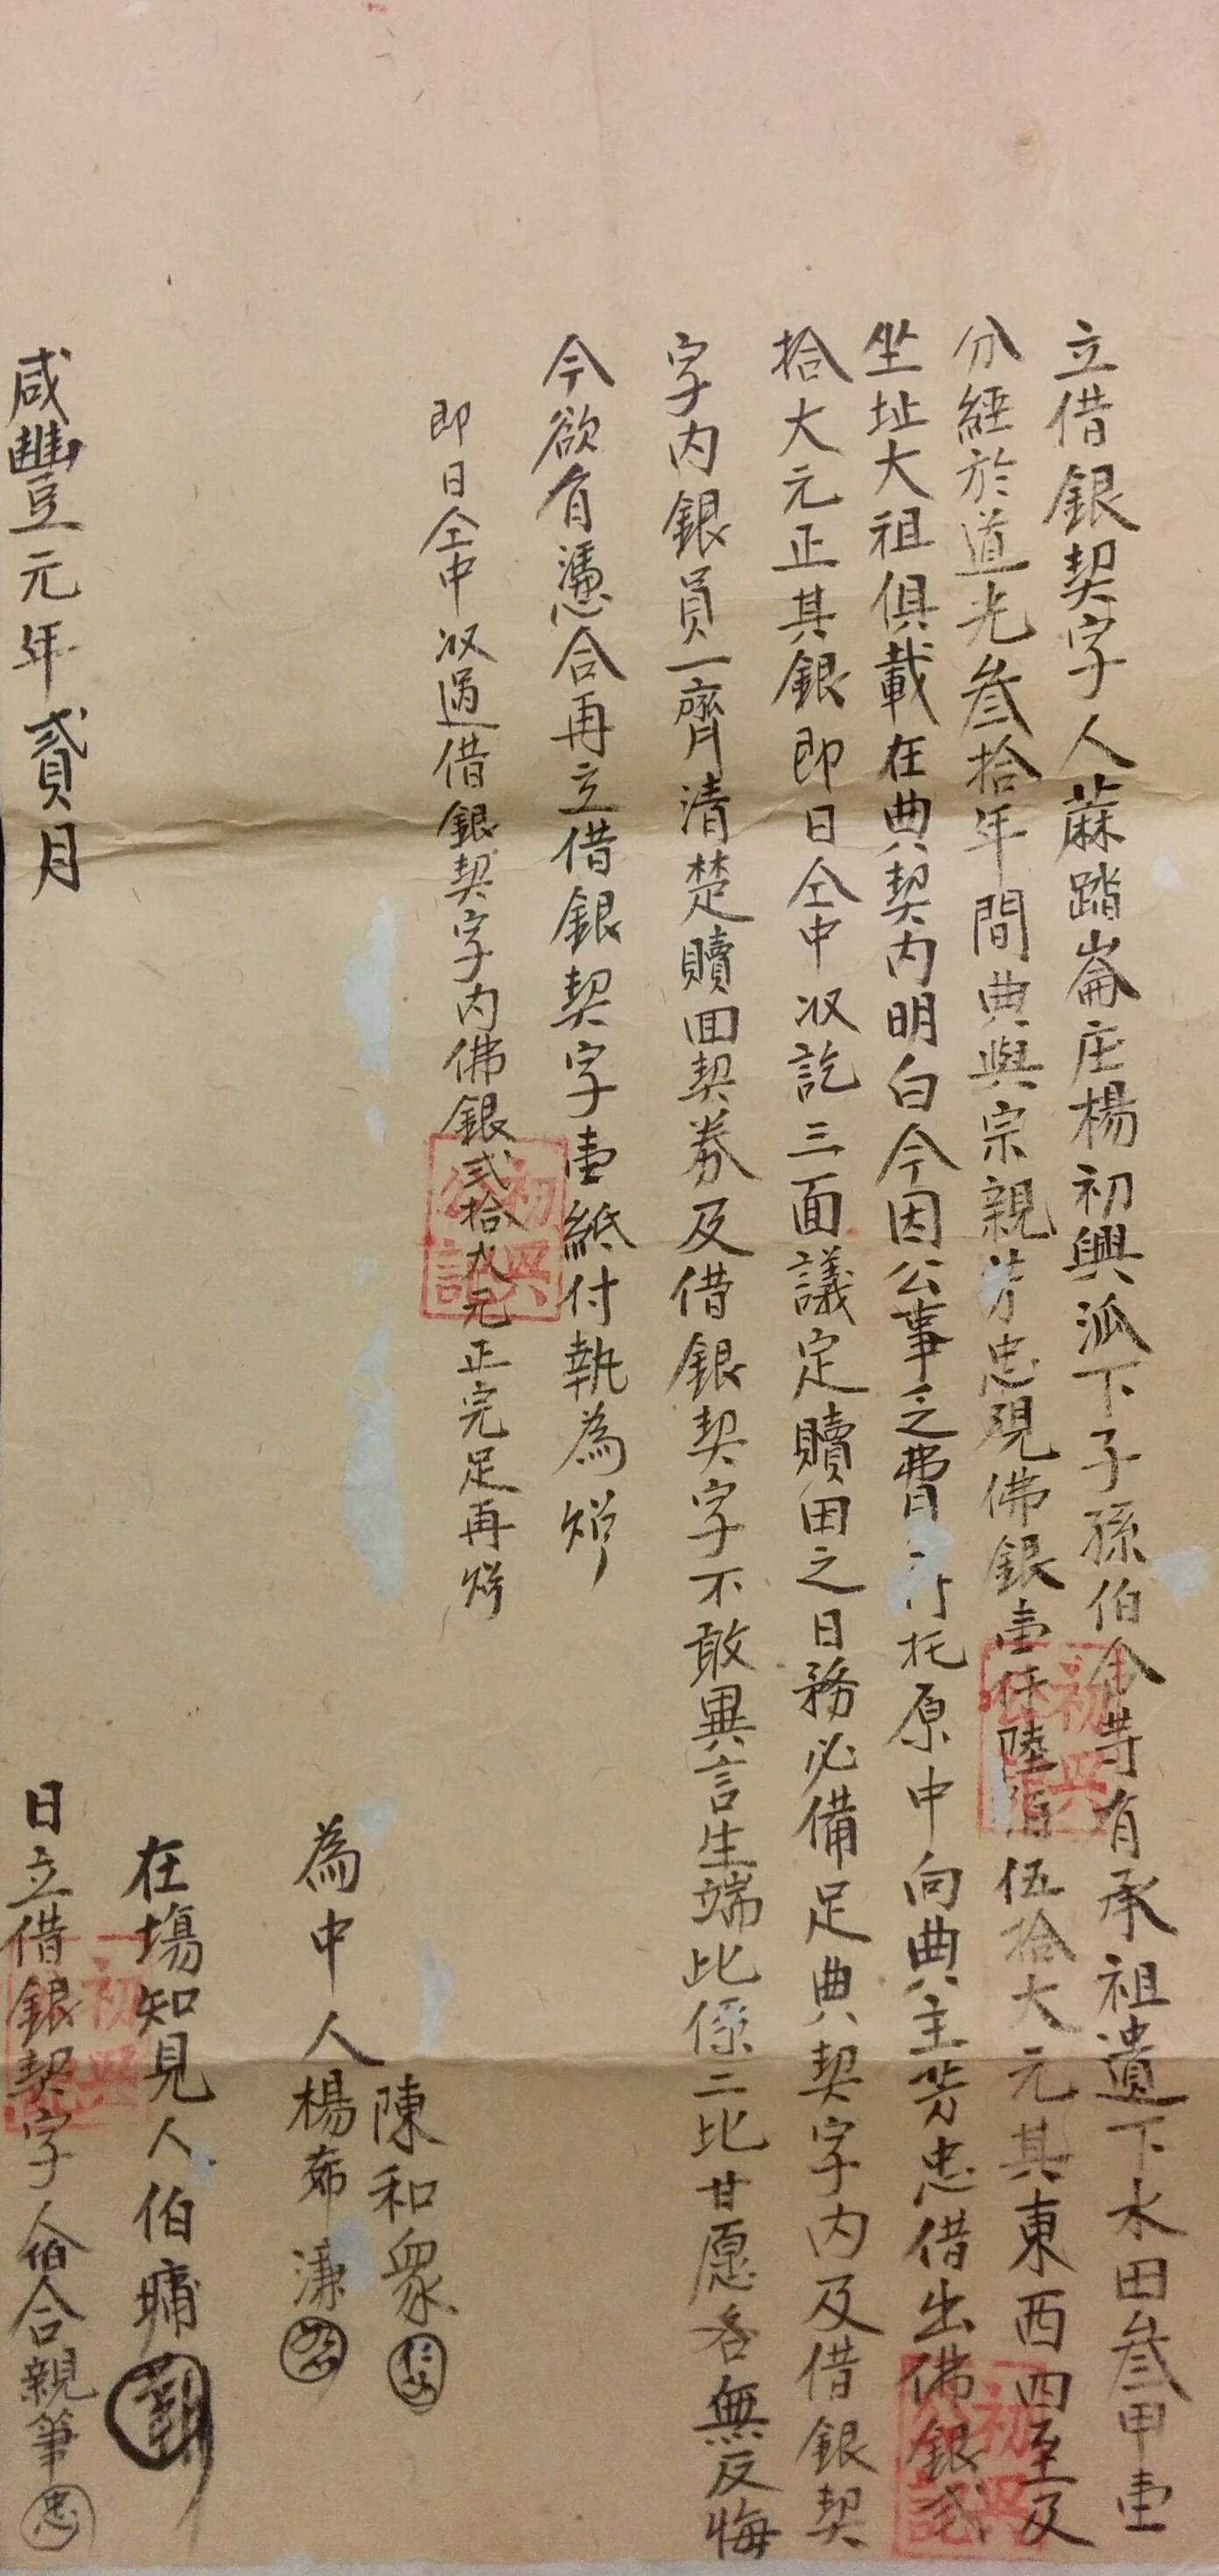 立借銀契字人蔴踏崙庄楊初興派下子孫伯合等有承祖遺下水田叁甲壹
分經於道光叁拾年間典與宗親芳忠現佛銀壹仟陸佰伍拾大元其東西四至及
坐址大祖俱載在典契内明白今因公事乏費托原中向典主芳忠借出佛銀弍
拾大元正其銀即日仝中收訖三面議定贖田之日務必備足典契字内及借銀契
字内銀員一齊清楚贖回契券及借銀契字不敢異言生端比係二比甘愿各無反悔
今欲有憑合再立借銀契字壹紙付執為炤
即日仝中收過借銀契字内佛銀弍拾大元正完足再炤
陳和衆
為中人楊
在塲知見人伯
咸豐元年貳月 日立借銀契字人伯合親筆 忠
初興公記
初興公記
初興公記
初興公記